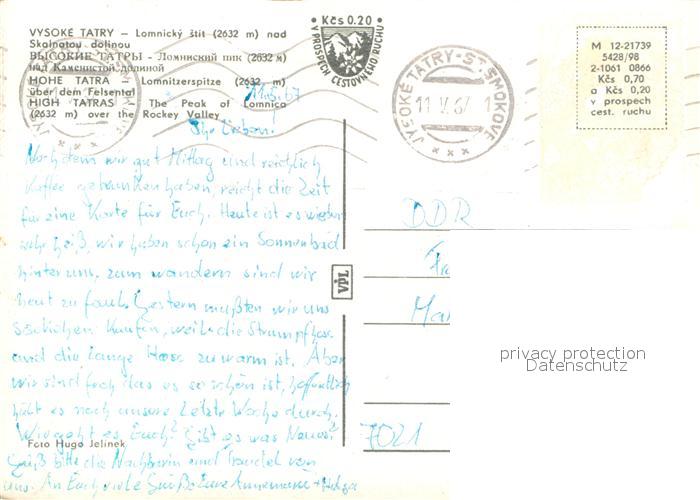 VYSOKÉ TATRY — Lomnický štít (2632 m) nad
Skalnatou dolinou
ВЫСОКИЕ ТАТРЫ - Ломницкий пик (2632 м)
над Каменистой долиной
HOHE TATRA — Lomnitzerspitze (2632 m)
über dem Felsental
HIGH TATRAS — The Peak of Lomnica
(2632 m) over the Rockey Valley
Kčs 0.20
V PROSPECH CESTOVNÉHO RUCHU
VYSOKÉ TATRY-ST. SMOKOVEC
11. V. 67
M 12-21739
5428/98
2-1061 0866
Kčs 0,70
a Kčs 0,20
v prospech
cest. ruchu
11.5.67
Ihr Lieben!
Nachdem wir gut Mittag und reichlich
Kaffee getrunken haben, reicht die Zeit
für eine Karte für Euch. Heute ist es wieder
sehr heiß, wir haben schon ein Sonnenbad
hinter uns, zum wandern sind wir
heut zu faul. Gestern mußten wir uns
Söckchen kaufen, weil die Strumpfhose
und die lange Hose zu warm ist. Aber
wir sind froh das es so schön ist, hoffentlich
hält es noch unsere letzte Woche durch.
Wie geht es Euch? Gibt es was Neues?
Grüß bitte die Nachbarin und Traudel von
uns. An Euch viele Grüße Eure Annemarie + Helga
Foto Hugo Jelínek
VPL
DDR
Fr
Mar
7021
privacy protection
Datenschutz